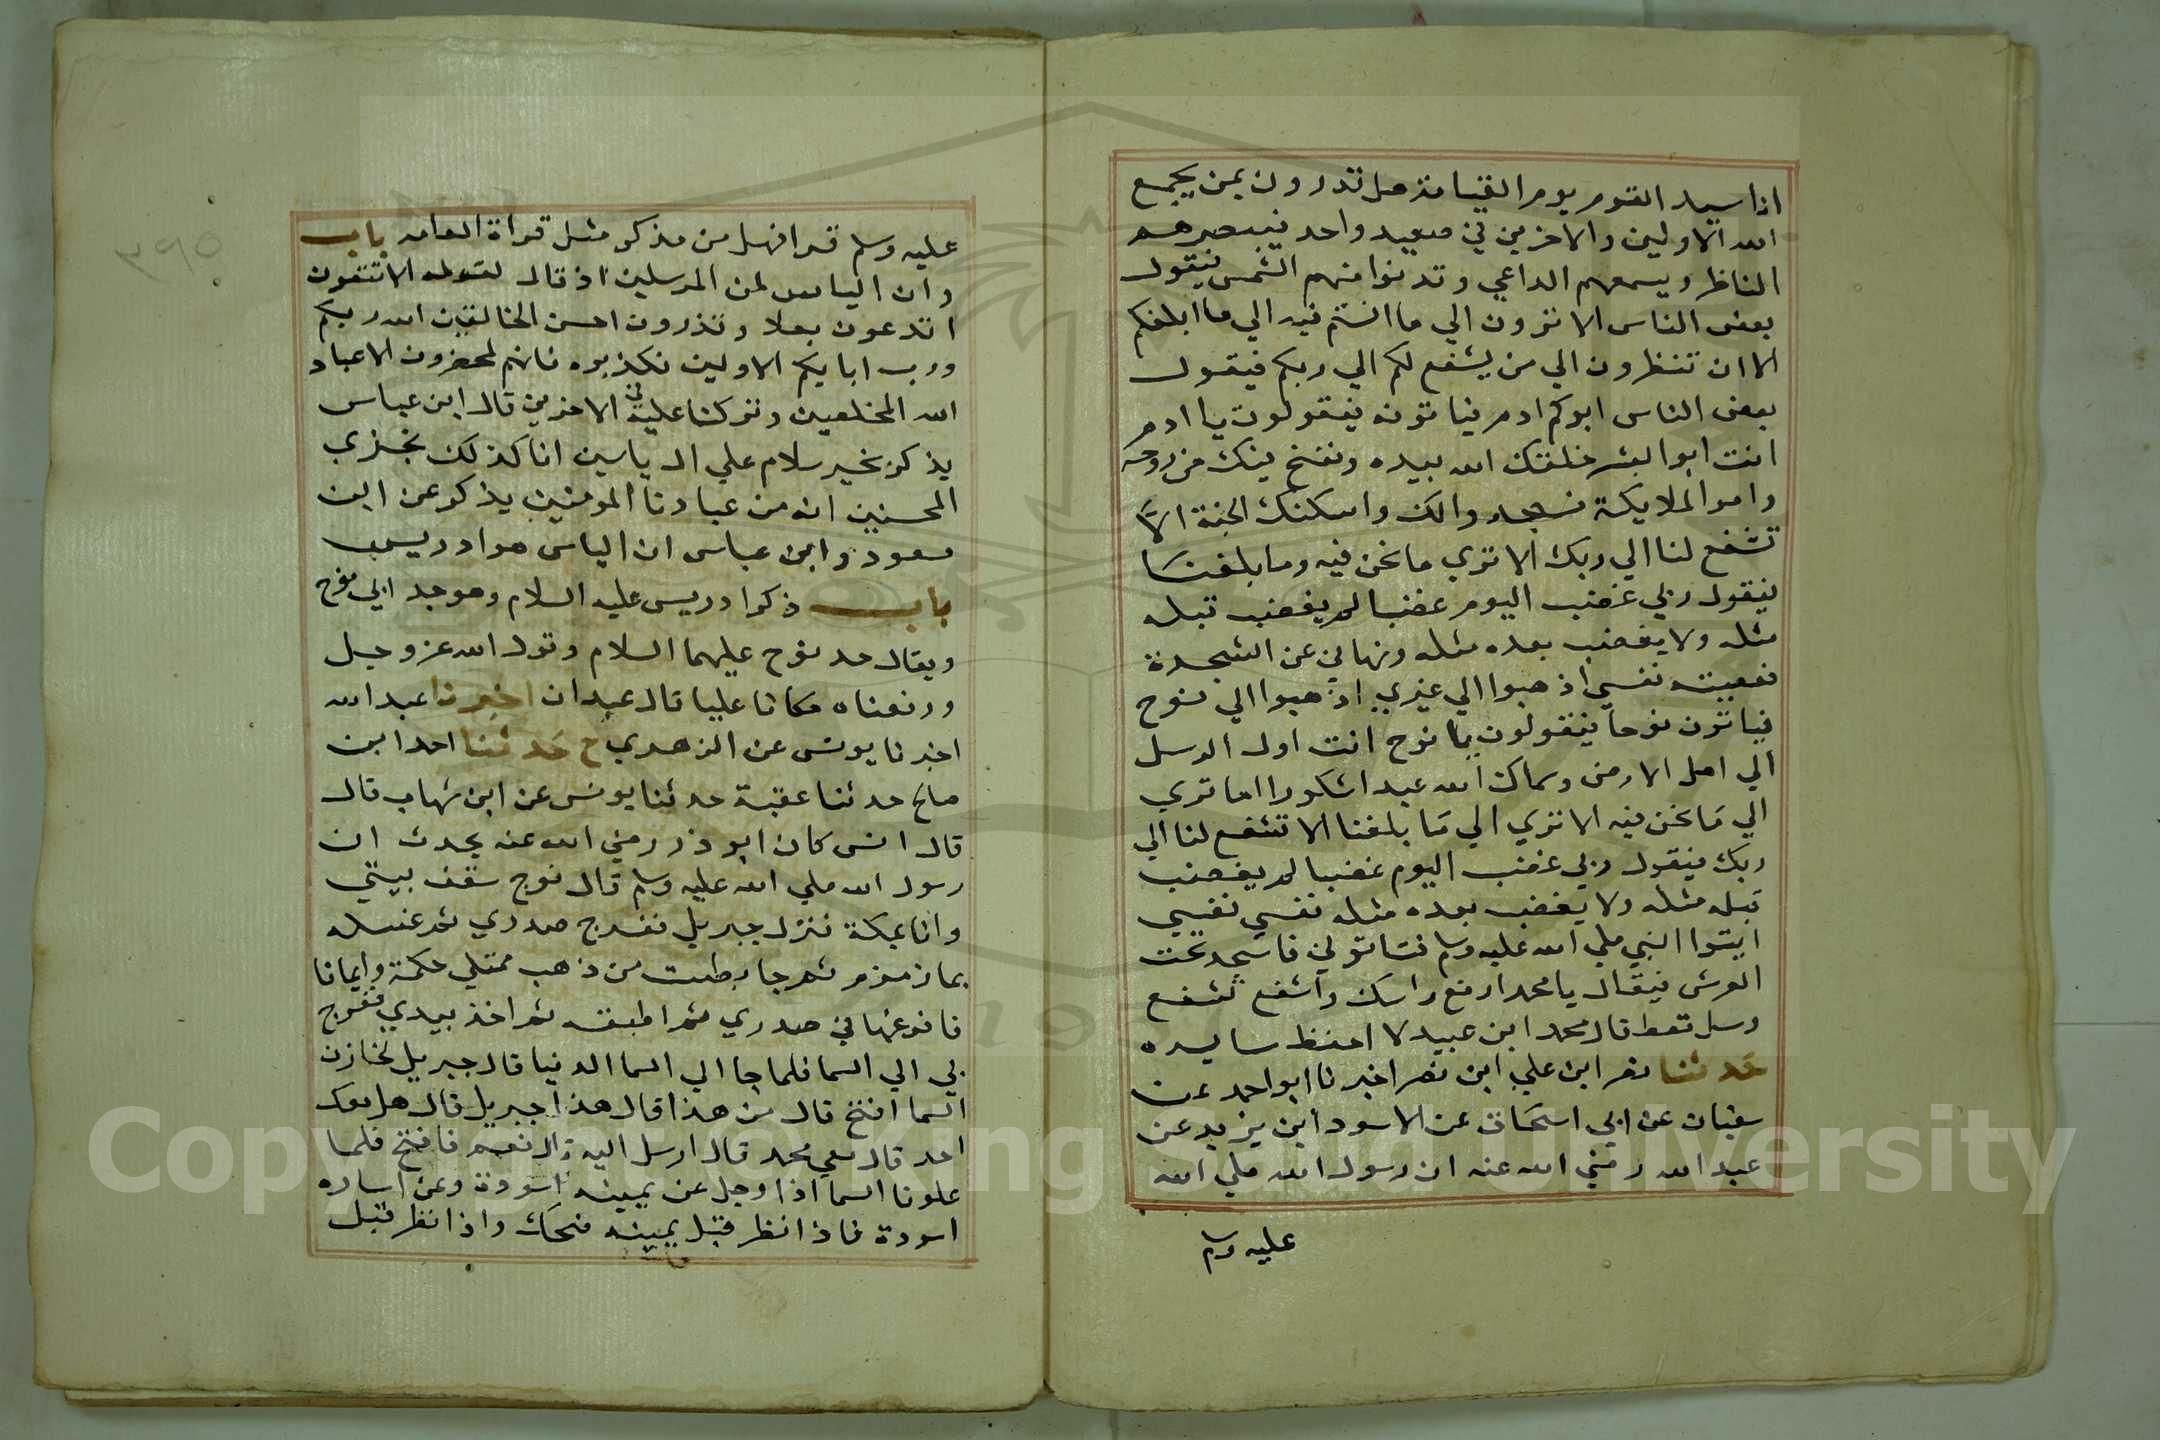 انا سيد القوم يوم القيامة هل تدرون بمن يجمع
الله الاولين والاخرين في صعيد واحد فيبصرهم
الناظر ويسمعهم الداعي وتدنوا منهم الشمس فيقول
بعض الناس الا ترون الي ما انتم فيه الي ما ابلغكم
الا ان تنظرون الي من يشفع لكم الي ربكم فيقول
بعض الناس ابوكم ادم فياتونه فيقولون يا ادم
انت ابوا البشر خلقك الله بيده ونفخ فيك من روحه
وامر الملايكة فسجدوا لك واسكنك الجنة الا
تشفع لنا الي ربك الا تري ما نحن فيه وما بلغنا
فيقول ربي غضب اليوم غضبا لم يغضب قبله
مثله ولا يغضب بعده مثله ونهاني عن الشجرة
فعصيته نفسي اذهبوا الي غيري اذهبوا الي نوح
فياتون نوحا فيقولون يا نوح انت اول الرسل
الي اهل الارض وسماك الله عبدا شكورا اما تري
الي ما نحن فيه الا تري الي ما بلغنا الا تشفع لنا الي
ربك فيقول ربي غضب اليوم غضبا لم يغضب
قبله مثله ولا يغضب بعده مثله نفسي نفسي
ايتوا النبي صلي الله عليه وسلم فياتوني فاسجد تحت
العرش فيقال يا محمد ارفع راسك واشفع تشفع
وسل تعط قال محمد ابن عبيد لا احفظ سايره
حدثنا نصر ابن علي ابن نصر اخبرنا ابو احمد عن
سفيان عن ابي اسحاق عن الاسود ابن يزيد عن
عبد الله رضي الله عنه ان رسول الله صلي الله
عليه وسلم
٣٩٥
عليه وسلم قرا فهل من مذكر مثل قراة العامه باب
وان الياس لمن المرسلين اذ قال لقومه الا تتقون
اتدعون بعلا وتذرون احسن الخالقين الله ربكم
ورب ابايكم الاولين فكذبوه فانهم لمحضرون الا عباد
الله المخلصين وتركنا عليه في الاخرين قال ابن عباس
يذكر بخير سلام علي ال ياسين انا كذلك نجزي
المحسنين انه من عبادنا المومنين يذكر عن ابن
مسعود وابن عباس ان الياس هو ادريس
باب ذكر ادريس عليه السلام وهو جد ابي نوح
ويقال جد نوح عليهما السلام وقول الله عز وجل
ورفعناه مكانا عليا قال عبدان اخبرنا عبد الله
اخبرنا يونس عن الزهري ح حدثنا احمد ابن
صالح حدثنا عقبة حدثنا يونس عن ابن شهاب قال
قال انس كان ابو ذر رضي الله عنه يحدث ان
رسول الله صلي الله عليه وسلم قال فرج سقف بيتي
وانا بمكة فنزل جبريل ففرج صدري ثم غسله
بما زمزم ثم جا بطست من ذهب ممتلي حكمة وايمانا
فافرغها في صدري ثم اطبقه ثم اخذ بيدي فعرج
بي الي السما فلما جا الي السما الدنيا قال جبريل لخازن
السما افتح قال من هذا قال هذا جبريل قال هل معك
احد قال معي محمد قال ارسل اليه قال نعم فافتح فلما
علونا السما اذا رجل عن يمينه اسودة وعن يساره
اسودة فاذا نظر قبل يمينه ضحك واذا نظر قبل
Copyright © King Saud University